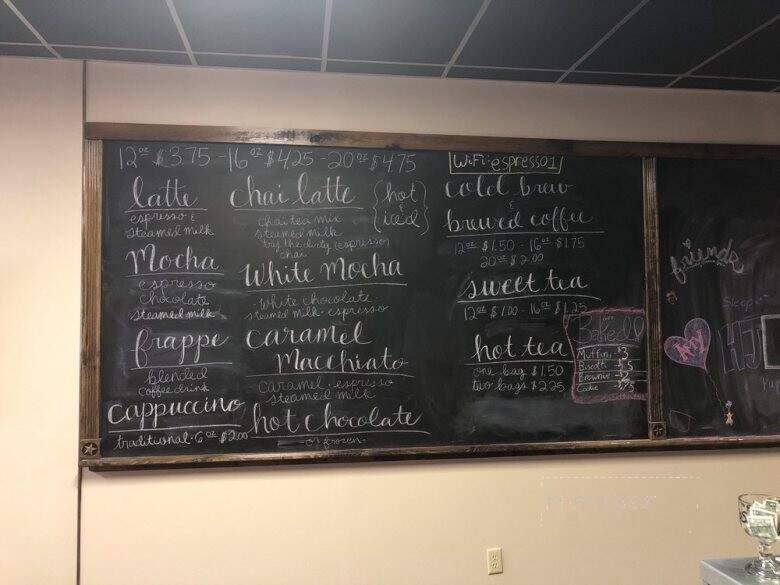 12oz $3.75 - 16oz $4.25 - 20oz $4.75
latte
espresso &
steamed milk
Mocha
espresso
chocolate
steamed milk
frappe
blended
coffee drink
cappuccino
traditional · 6oz $2.00
chai latte
chai tea mix
steamed milk
try the dirty (espresso)
chai
{hot
&
iced}
White Mocha
white chocolate
steamed milk · espresso
caramel
Macchiato
caramel · espresso
steamed milk
hot chocolate
or frozen
WiFi: espresso1
cold brew
&
brewed coffee
12oz $1.50 · 16oz $1.75
20oz $2.00
sweet tea
12oz $1.00 · 16oz $1.25
hot tea
one bag $1.50
two bags $2.25
Baked
Muffin $3
Biscotti
Brownie
Cookie
friends
Sleep